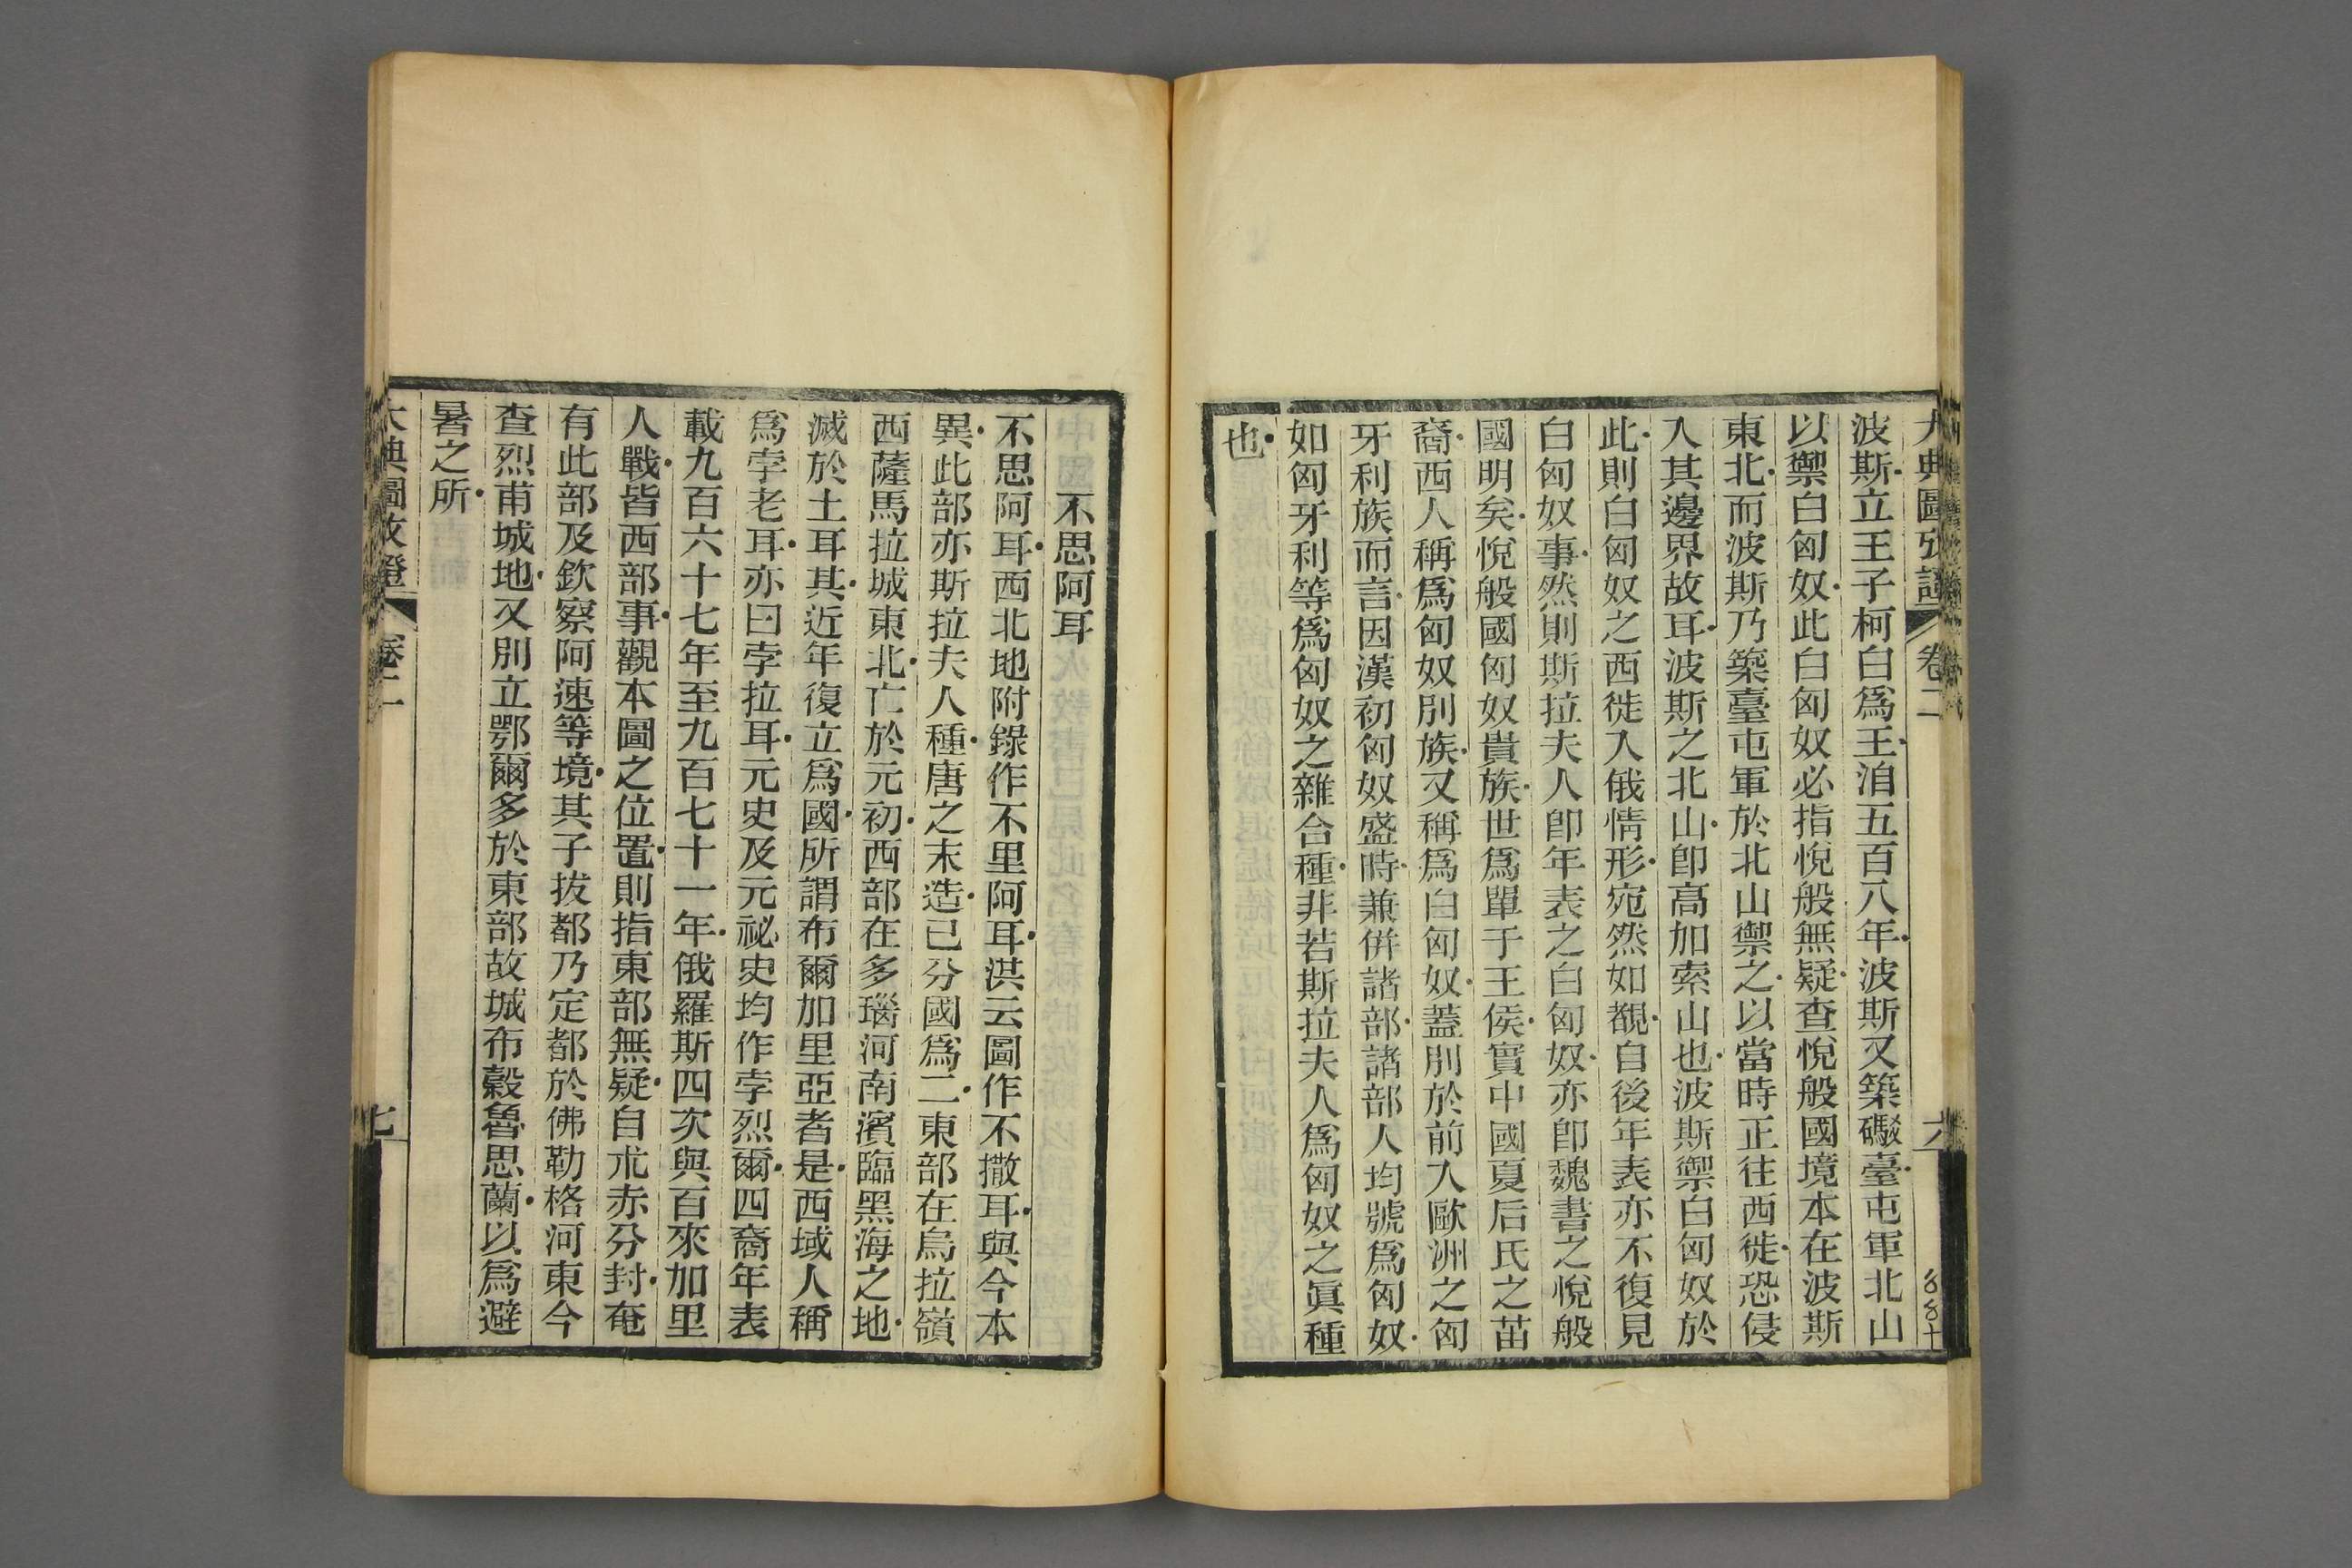 大典圖攷證 卷二 六
波斯立王子柯白爲王洎五百八年波斯又築礟臺屯軍北山
以禦白匈奴此白匈奴必指悅般無疑查悅般國境本在波斯
東北而波斯乃築臺屯軍於北山禦之以當時正往西徙恐侵
入其邊界故耳波斯之北山卽高加索山也波斯禦白匈奴於
此則白匈奴之西徙入俄情形宛然如覩自後年表亦不復見
白匈奴事然則斯拉夫人卽年表之白匈奴亦卽魏書之悅般
國明矣悅般國匈奴貴族世爲單于王侯實中國夏后氏之苗
裔西人稱爲匈奴別族又稱爲白匈奴蓋別於前入歐洲之匈
牙利族而言因漢初匈奴盛時兼併諸部諸部人均號爲匈奴
如匈牙利等爲匈奴之雜合種非若斯拉夫人爲匈奴之眞種
也
不思阿耳
不思阿耳西北地附錄作不里阿耳洪云圖作不撒耳與今本
異此部亦斯拉夫人種唐之末造已分國爲二東部在烏拉嶺
西薩馬拉城東北亡於元初西部在多瑙河南濱臨黑海之地
滅於土耳其近年復立爲國所謂布爾加里亞者是西域人稱
爲孛老耳亦曰孛拉耳元史及元祕史均作孛烈爾四裔年表
載九百六十七年至九百七十一年俄羅斯四次與百來加里
人戰皆西部事觀本圖之位置則指東部無疑自朮赤分封奄
有此部及欽察阿速等境其子拔都乃定都於佛勒格河東今
查烈甫城地又別立鄂爾多於東部故城布穀魯思蘭以爲避
暑之所
大典圖攷證 卷二 七